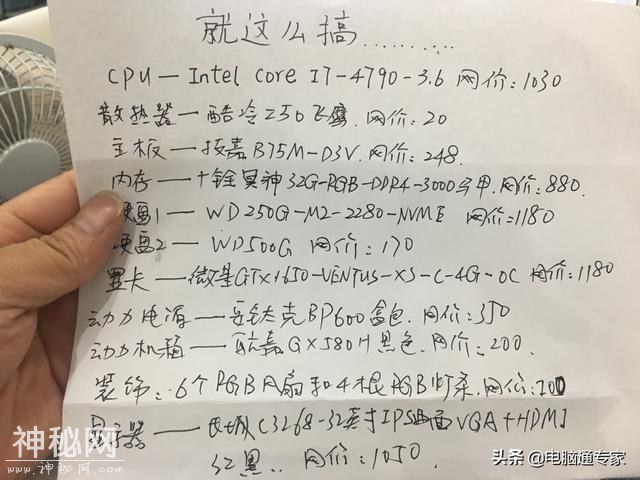 就这么搞.........
CPU — Intel Core I7-4790-3.6 网价:1030
散热器 — 酷冷Z50飞鹰.网价:20
主板 — 技嘉B75M-D3V.网价:248.
内存 — 十铨冥神32G-RGB-DDR4-3000马甲.网价:880.
硬盘1 — WD250G-M2-2280-NVME 网价:1180
硬盘2 — WD500G 网价:170
显卡 — 微星GTX1650-VENTUS-XS-C-4G-OC 网价:1180
动力电源 — BP600盒包.网价:350
动力机箱 — GX580H黑色.网价:200.
装饰:6个RGB风扇和4根RGB灯条.网价:
显示器 — 长城C3268-32英寸IPS曲面VGA+HDMI
红黑.. 网价:1050.
神秘网
www.shenmiwang.com
头条@电脑通专家